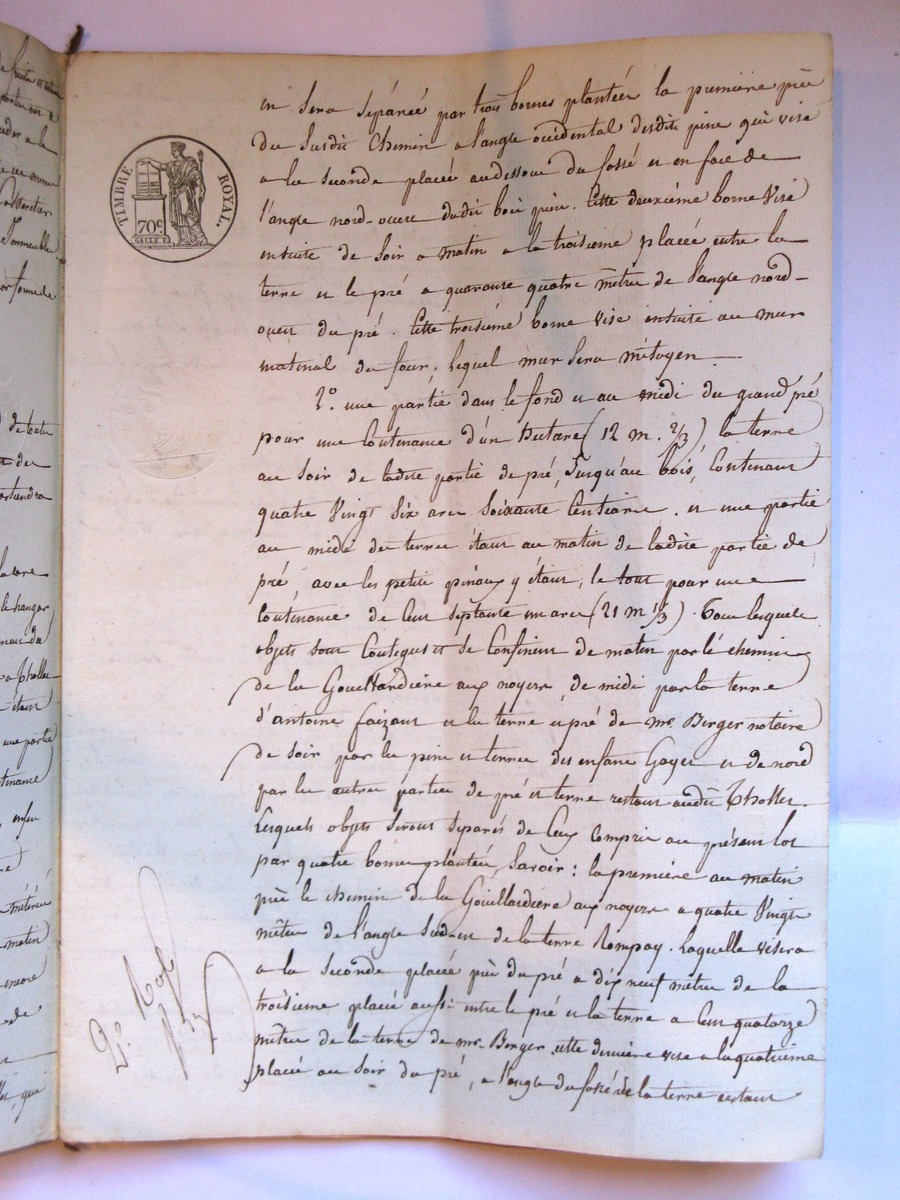 TIMBRE ROYAL.
70c
en sera séparée par trois bornes plantées la premiere près
du susdit Chemin a l'angle occidental desdits pins qui vise
a la seconde placée audessous du fossé et en face de
l'angle nord-ouest dudit bois pins. Cette deuxième borne vise
ensuite de soir a matin a la troisieme placée entre la
terre et le pré a quarante quatre mètres de l'angle nord-
ouest du pré. Cette troisième borne vise ensuite au mur
matinal du four, lequel mur sera mitoyen
2o. une partie dans le fond et au midi du grand pré
pour une Contenance d'un hectare (12 m. 2/3), la terre
au soir de ladite partie de pré, Jusqu'au bois, Contenant
quatre vingt six ares soixante Centiares. et une partie
au midi de terre étant au matin de ladite partie de
pré, avec les petits pinaux y étant, le tout pour une
Contenance de Cent septante un ares (21 m 1/3). Tous lesquels
objets sont Contigus et se Confinent de matin par le chemin
de la Gouellardière aux noyers, de midi par la terre
d'antoine faizant et la terre et pré de mr. Berger notaire
de soir par les pins et terres des enfans Goyet et de nord
par les autres parties de pré et terre restant audit Tholler.
Lesquels objets seront séparés de Ceux Compris au présent lot
par quatre bornes plantées, savoir: la première au matin
près le chemin de la Gouellardière aux noyers a quatre vingts
mètres de l'angle sud-est de la terre Rompay. laquelle visera
a la seconde placée près du pré a dix neuf mètres de la
troisieme placée aussi entre le pré et la terre a Cent quatorze
mètres de la terre de mr. Berger, cette dernière vise a la quatrieme
placée au soir du pré, a l'angle du fossé de la terre restant
2e. Rol